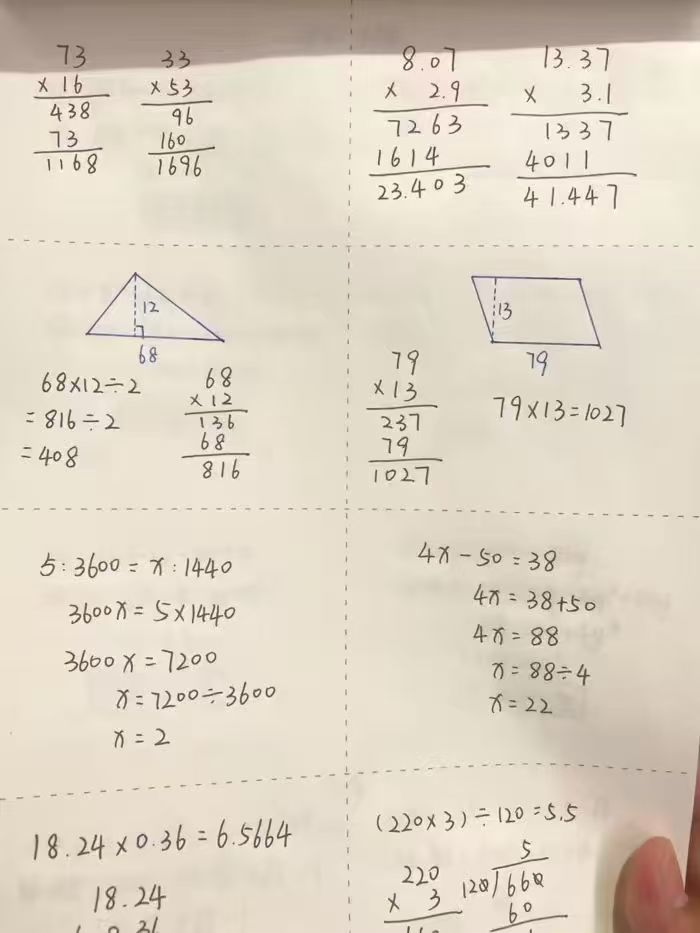 73
× 16
438
73
1168
33
× 53
96
160
1696
8.07
× 2.9
7263
1614
23.403
13.37
× 3.1
1337
4011
41.447
12
68
68×12÷2
=816÷2
=408
68
×12
136
68
816
13
79
79
×13
237
79
1027
79×13=1027
5:3600=x:1440
3600x=5×1440
3600x=7200
x=7200÷3600
x=2
4x-50=38
4x=38+50
4x=88
x=88÷4
x=22
18.24×0.36=6.5664
18.24
0.36
(220×3)÷120=5.5
220
× 3
5
120)660
60